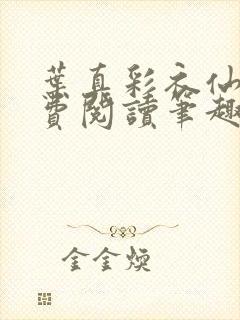 葉真彩衣仙
費閱讀筆趣
金金煐